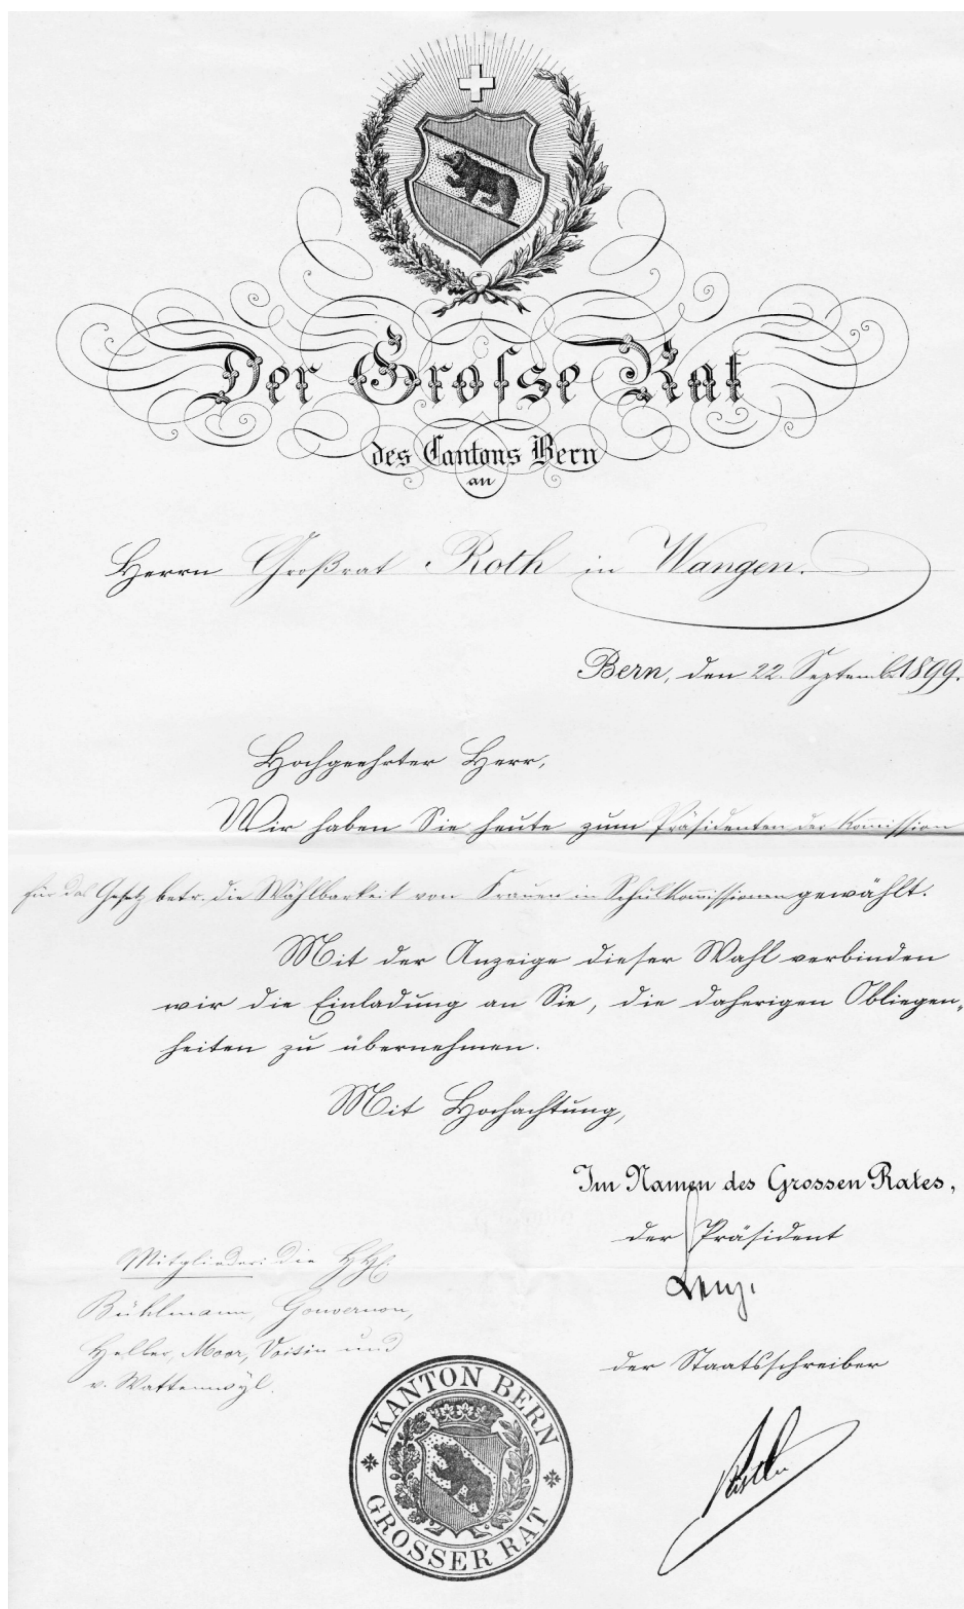 Der Grosse Rat
des Cantons Bern
an
Herrn Großrat Roth in Wangen.
Bern, den 22. Septemb. 1899.
Hochgeehrter Herr,
Wir haben Sie heute zum Präsidenten der Kom̅ission
für das Gesetz betr. die Wählbarkeit von Frauen in Schulkom̅issionen gewählt.
Mit der Anzeige dieser Wahl verbinden
wir die Einladung an Sie, die daherigen Obliegen-
heiten zu übernehmen.
Mit Hochachtung,
Im Namen des Grossen Rates,
der Präsident
Lenz.
Mitglieder: die HH.
Bühlmann, Gouvernon,
Heller, Moor, Voisin und
v. Wattenwyl.
der Staatsschreiber
KANTON BERN
GROSSER RAT